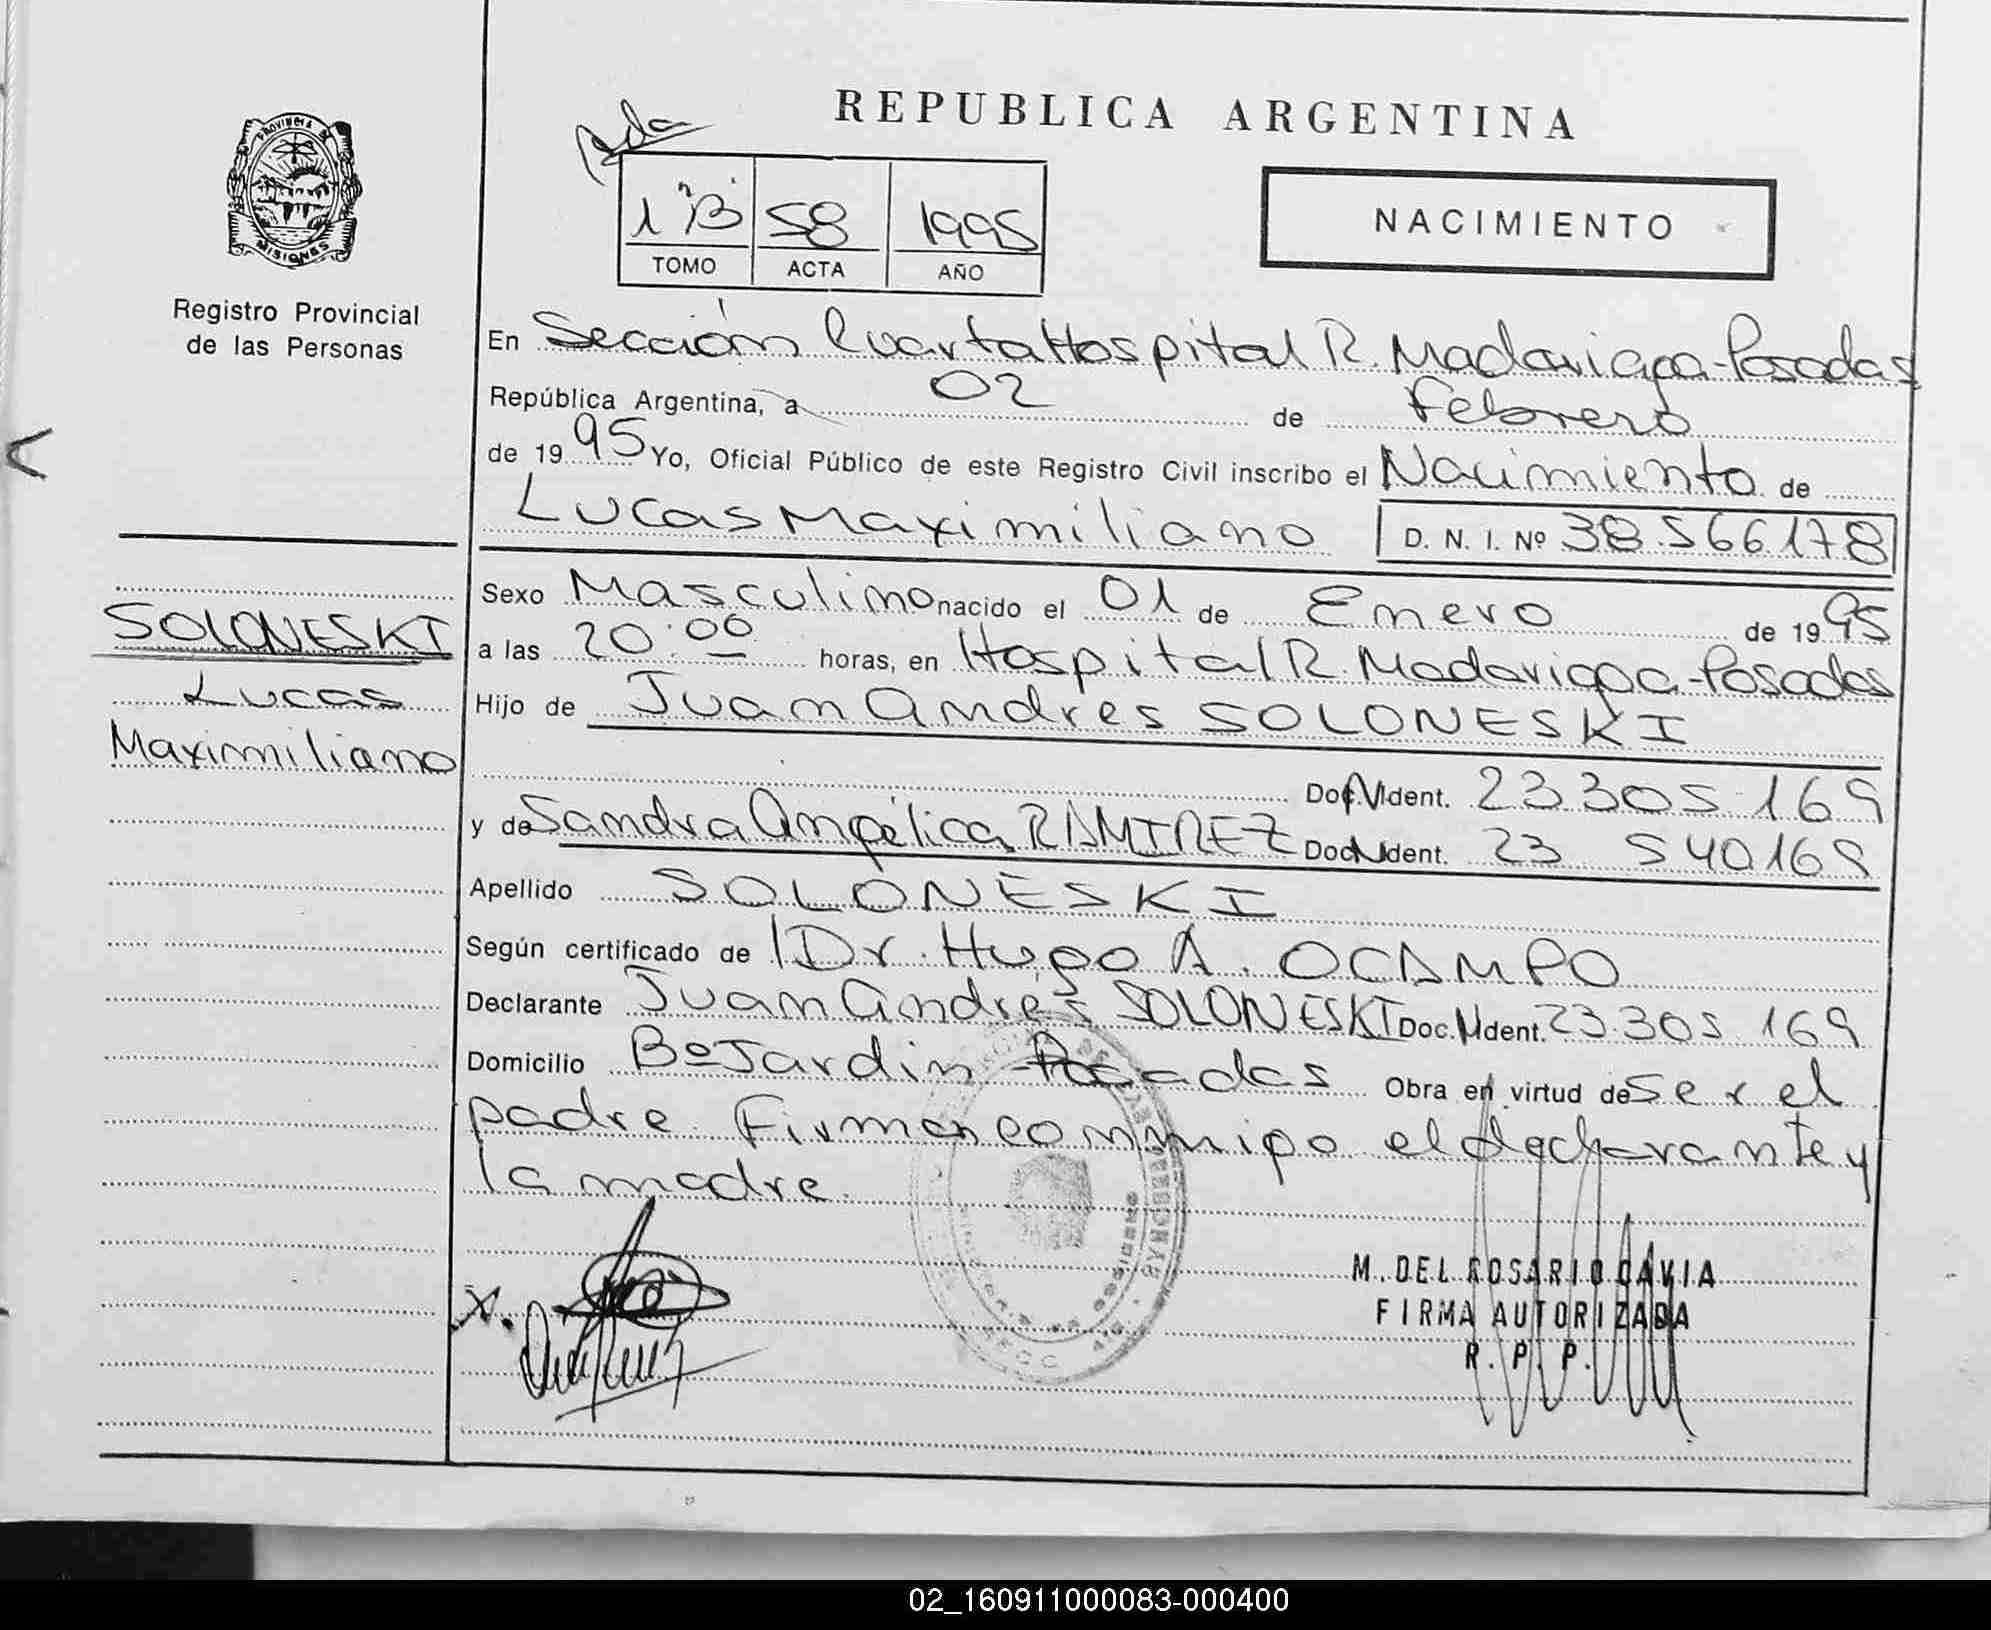 REPUBLICA ARGENTINA
PROVINCIA DE
MISIONES
Registro Provincial
de las Personas
1 "B" 58 1995
TOMO ACTA AÑO
NACIMIENTO
En Sección Cuarta Hospital R. Madariaga - Posadas
República Argentina, a 02 de Febrero
de 1995 Yo, Oficial Público de este Registro Civil inscribo el Nacimiento de
Lucas Maximiliano D. N. I. Nº 38.566.178
SOLONESKI
Lucas
Maximiliano
Sexo Masculino nacido el 01 de Enero de 1995
a las 20:00 horas, en Hospital R. Madariaga - Posadas
Hijo de Juan Andres SOLONESKI
Doc. Ident. 23 305 169
y de Sandra Angélica RAMIREZ Doc. Ident. 23 540169
Apellido SOLONESKI
Según certificado de Dr. Hugo A. OCAMPO
Declarante Juan Andrés SOLONESKI Doc. Ident. 23.305 169
Domicilio Bº Jardin - Posadas Obra en virtud de Ser el
padre. Firman conmigo el declarante y
la madre.
X.
M. DEL ROSARIO GAVIA
FIRMA AUTORIZADA
R. P. P.
02_160911000083-000400